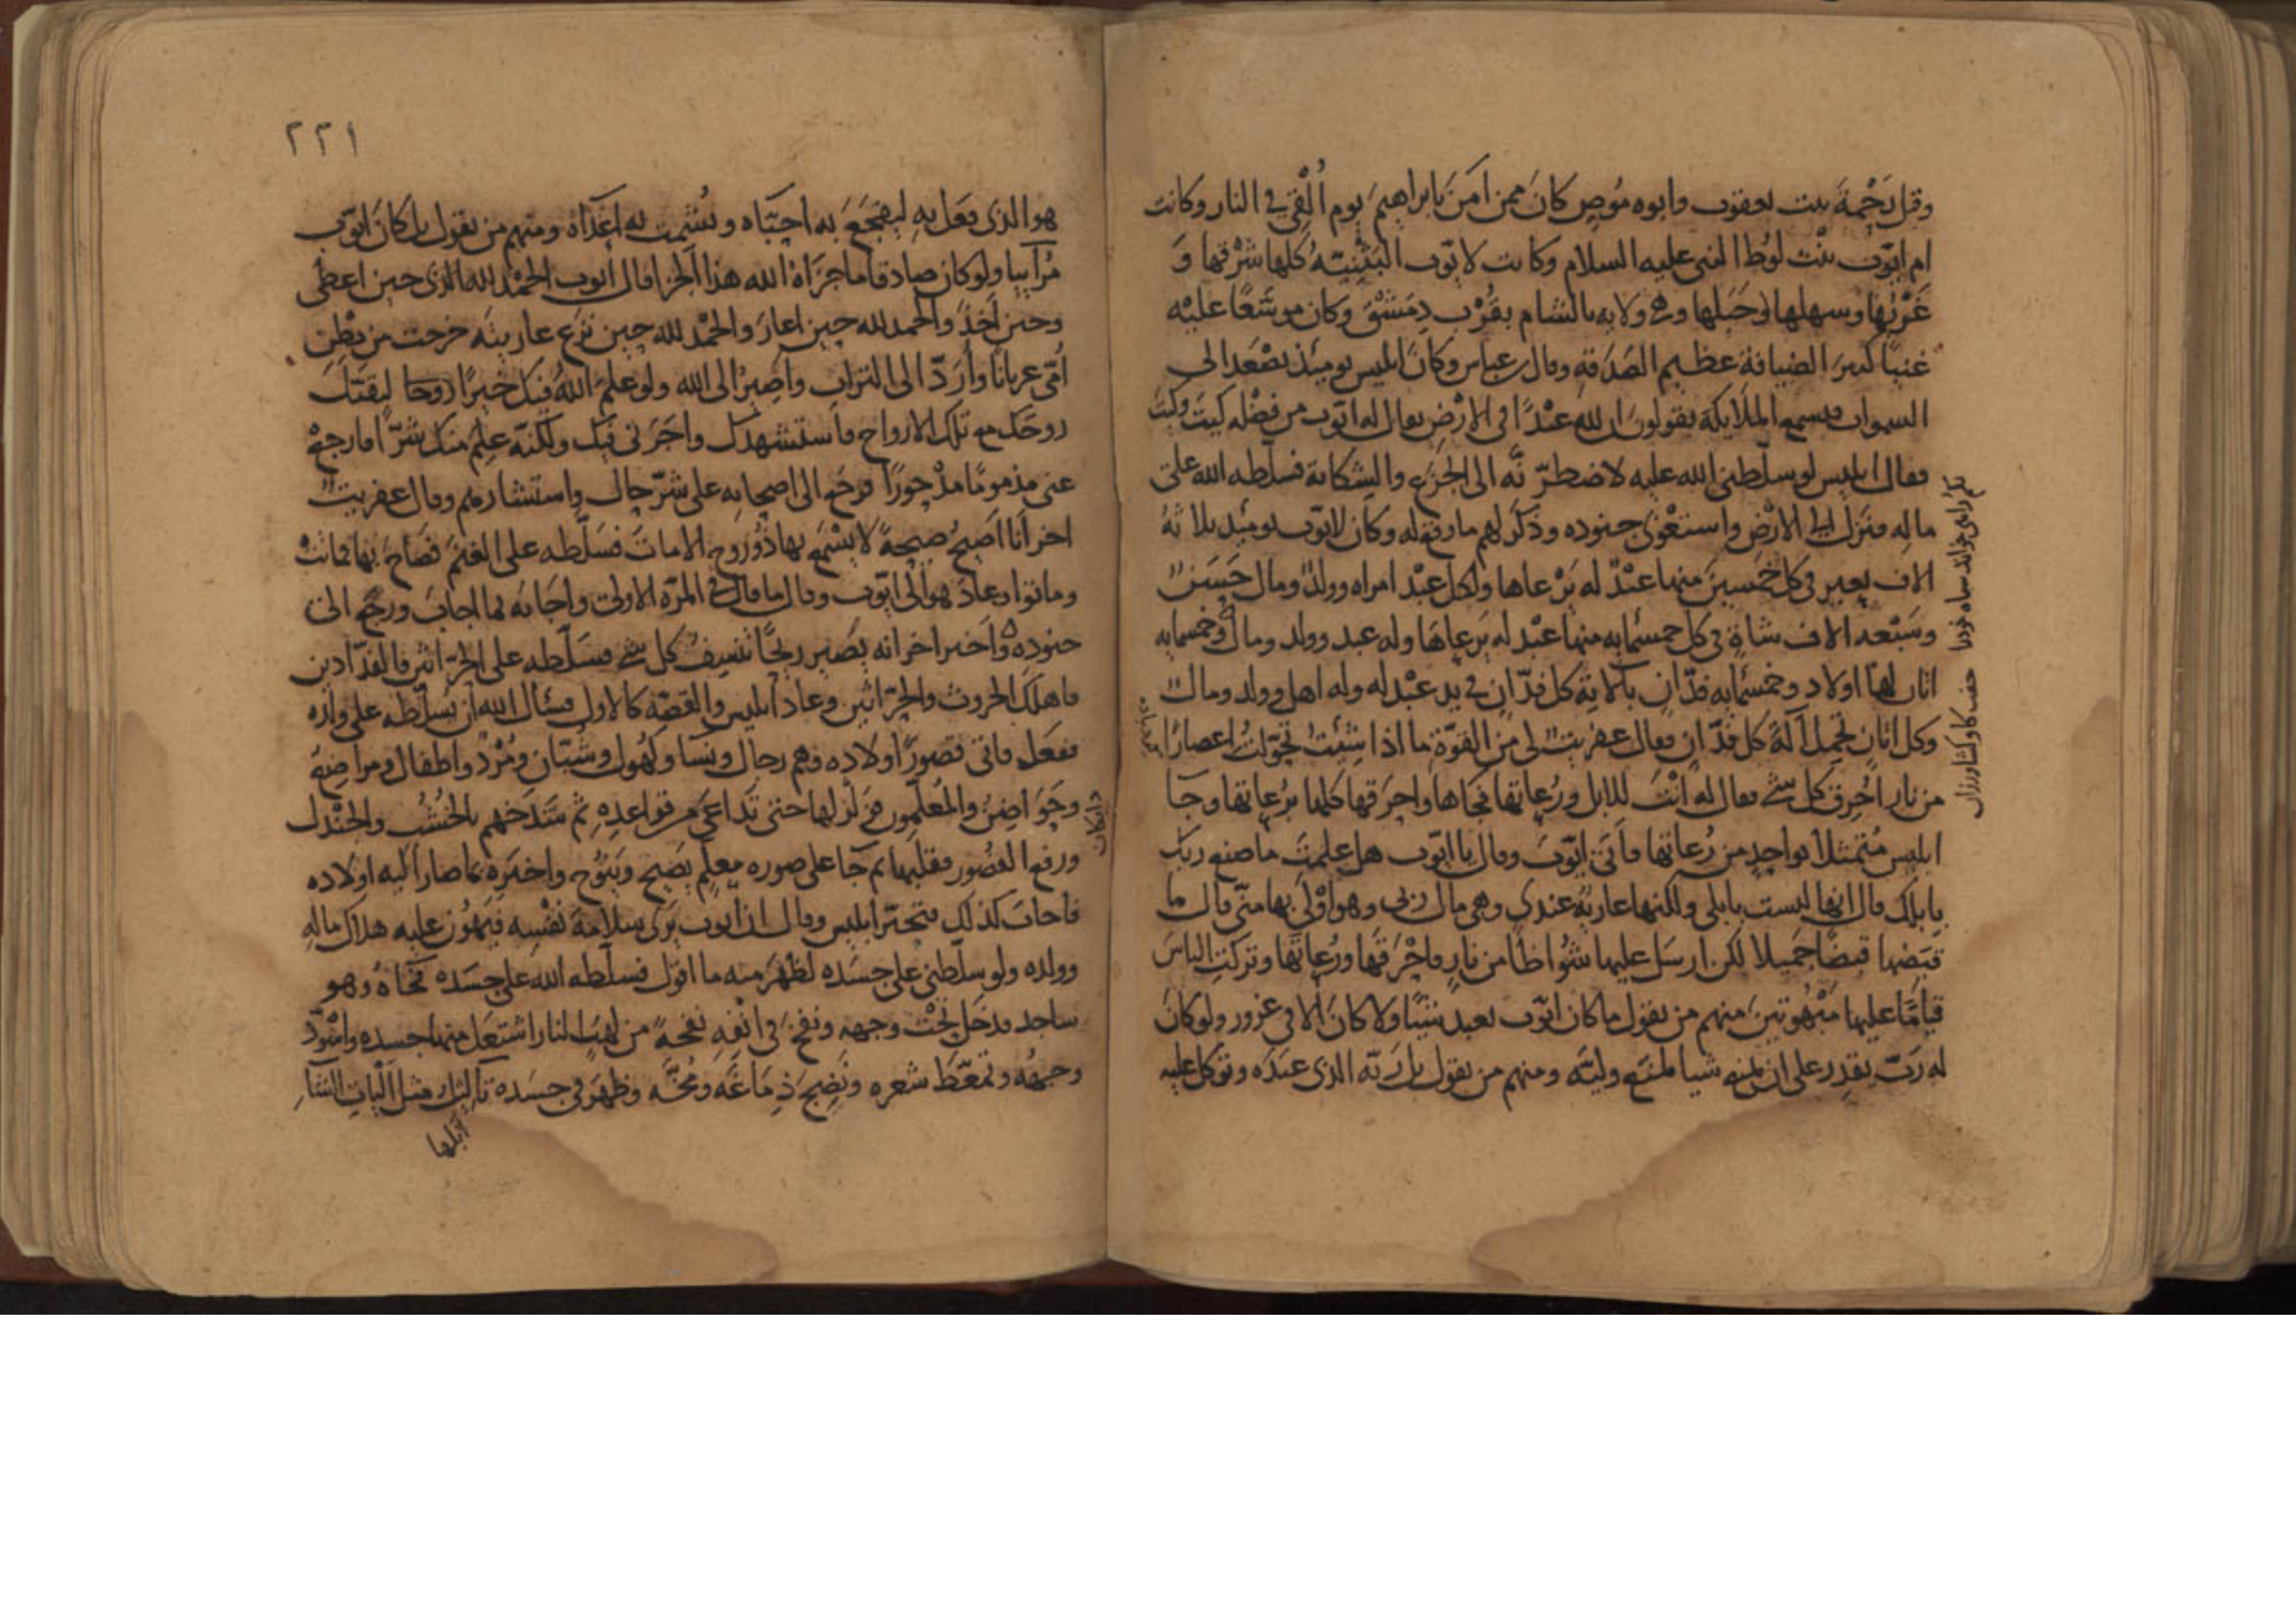 وقيل رَحْمَةَ بنت يعقوب وابوه مُوص كانَ ممن امَنَ بابراهيمَ يوم اُلْقِيَ في النار وكانت
ام ايّوب بنْت لوُط النبي عليه السلام وكانت لايّوب البَثَنِيّةُ كلها شَرْقها وَ
غَرْبُها وسهلها وجَبَلها وهي ولايه بالشام بقُرْب دِمَشْقَ وكان موسَّعًا عليْه
غنيًا كثيرَ الضيافة عظيم الصَدَقةِ وقال ابن عباس وكانَ ابليس يوميذ يصْعَد الى
السموات فيسمع الملايكة يقولون ان لله عبْدًا في الارْضِ يقال له ايّوب من فضْله كيتَ وكيتَ
فقال ابليس لو سلّطني الله عليه لاضطرّ نّه الى الجزع والشكاية فسلّطه الله على
مالِه فنزل الى الارْض واستغْوَى جنوده وذكَر لهم ما رفع له وكان لايّوب يوميذ ثلاثهُ
الاف بعير في كل خمسينَ منها عبْدٌ له يَرْعاها ولكل عبْد امراه وولدٌ ومال حَسَنٌ
وسَبْعه الاف شاة في كل خمسمايه منها عبْد له يَرعاهَا وله عبد وولد ومالٌ وخمسمايه
اتان لها اولاد وخمسمايه فدّان بآلاتِهَ كل فدّان في يد عبْد له وله اهل وولد ومالٌ
وكل اتان تحْمِل آلةَ كل فدّان فقال عفريتٌ لي من القوّة ما اذا شِئتُ تحوّلتُ اعصارًا
من نار اُحْرِق كل شي فقال له انْتَ للابل ورُعاتها فجاها واحرَقها كلها برُعاتها وجآ
ابليس مُتمثلا بواحِدٍ من رُعاتها فاَتى ايّوبَ وقال يا ايّوب هل علمتَ ما صنع ربّك
بابلك قال انها ليست بابلي ولكنها عاريَةُ عندي وهي مال ربي وهو اَوْلى بها منّي قال ما
قبَضها قبضًا جَميلا لكن ارسَل عليها شُواظًا من نارٍ فاحْرَقَها ورُعاتَها وتركتِ الناسَ
قيامًا عليها مَبْهُوتينَ منهم من يقول ما كان ايّوب يعبد شيئًا ولا كانَ الا في غرور ولو كانَ
له ربّ يقدِر على ان يمنع شيا لمنَعَ وليّه ومنهم من يقول بل ربّه الذى عبَدَه وتوكل عليه
٢٢١
هو الذى فعَل بهِ ليفجعَ به احِبّاه ويُشْمِت به اعدَآه ومنهم من يقول بل كانَ ايّوب
مُرآييا ولو كان صادقا ما جزاهُ الله هذا الجزا قال ايوب الحمْد لله الذى حين اعطى
وحين اَخذ والحمد لله حين اعارَ والحمْد لله حين نزَع عاريته خرجت من بطْنِ
اُمّي عريانًا واُرَدّ الى التراب واَصِير الى الله ولو علمَ اللهُ فيك خيرًا ايها لقبَل
روحَك مع تلك الارواح فاستشهدك واجَرَني فيك ولكنّه عَلِم منك شرًّا فارجعْ
عني مذمومًا مدْحورًا فرجَع الى اصحابه على شرّ حالٍ واستشارهم وقال عفريتٌ
اخر اَنا اَصيحُ صيحةً لا يسْمع بها ذُو رُوح الا ماتَ فسَلّطه على الغنَم فصَاح بها فماتتْ
وماتوا وعادَ هو الى ايّوب وقال ما قال في المرّة الاولى واجَابه بما اجابَ ورجع الى
جنوده واَخبر اخر انه يَصَير ريحًا تنسِفُ كل شي فسَلّطه على الحرّاثين والفدّادين
فاهلك الحروث والحرّاثين وعاد ابليس والقصّه كالاول فسَاَل الله ان يُسلّطه على ولَده
ففعَل فاتى قصورَ اولاده وهم رجال ونسا وكُهُول وشُبّان ومُرْد واطفال ومراضِعُ
وحَوَاضِنُ والمعُلّمون فزَلزَلها حتى تَداعَىَ من قواعدِه ثم شَدَخهم بالخُشُب والجنْدل
ورفع القصُور فقلبها ثم جآ على صوره معلّم يَصيح ويَنُوح واخبَره بما صار اليه اولاده
فاجابَ كذلك فتحيّر ابليس وقال ان ايوب يَرَى سلامةَ نفْسِه فيَهُون عليه هلاك مالِه
وولَده ولو سلّطني على جسَده لظهَر منه ما اقول فسلّطه الله على جسَده فجآهُ وهو
ساجد فدخَل تحْت وجهه ونفخ في انْفه نفخةً من لَهَب النار اشتعَل منها جسده واسْوَدّ
وجهُه وتمعّطَ شعره ونَضِجَ دِمَاغه ومُخّه وظهَر في جسَده تآليل مثل اَليات الشآءِ
آبلها